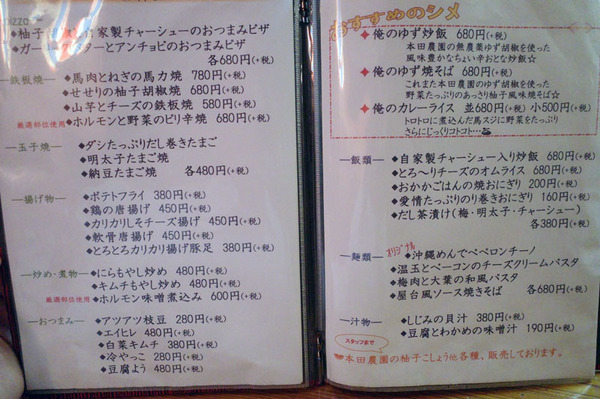 pizzo
◆柚子 自家製チャーシューのおつまみピザ
◆ガー ターとアンチョビのおつまみピザ
各680円(+税)
―鉄板焼―
◆馬肉とねぎの馬力焼 780円(+税)
◆せせりの柚子胡椒焼 680円(+税)
◆山芋とチーズの鉄板焼 580円(+税)
厳選部位使用
◆ホルモンと野菜のピリ辛焼 680円(+税)
―玉子焼―
◆ダシたっぷりだし巻きたまご
◆明太子たまご焼
◆納豆たまご焼 各480円(+税)
―揚げ物―
◆ポテトフライ 380円(+税)
◆鶏の唐揚げ 450円(+税)
◆カリカリしそチーズ揚げ 450円(+税)
◆軟骨唐揚げ 450円(+税)
◆とろとろカリカリ揚げ豚足 380円(+税)
―炒め・煮物―
◆にらもやし炒め 480円(+税)
◆キムチもやし炒め 480円(+税)
厳選部位使用
◆ホルモン味噌煮込み 600円(+税)
―おつまみ―
◆アツアツ枝豆 280円(+税)
◆エイヒレ 480円(+税)
◆白菜キムチ 380円(+税)
◆冷やっこ 280円(+税)
◆豆腐よう 480円(+税)
おすすめのシメ
◆俺のゆず炒飯 680円(+税)
本田農園の無農薬ゆず胡椒を使った
風味豊かなちょい辛おとな炒飯☆
◆俺のゆず焼そば 680円(+税)
これまた本田農園ゆず胡椒を使った
野菜たっぷりのあっさり柚子風味焼そば☆
◆俺のカレーライス 並680円(+税) 小500円(+税)
トロトロに煮込んだ馬スジに野菜をたっぷり
さらにじっくりコトコト…
―飯類―
◆自家製チャーシュー入り炒飯 680円(+税)
◆とろ〜りチーズのオムライス 680円(+税)
◆おかかごはんの焼おにぎり 200円(+税)
◆愛情たっぷりのり巻きおにぎり 160円(+税)
◆だし茶漬け(梅・明太子・チャーシュー)
各380円(+税)
―麺類―
オリジナル
◆沖縄めんでペペロンチーノ
◆温玉とベーコンのチーズクリームパスタ
◆梅肉と大葉の和風パスタ
◆屋台風ソース焼きそば 各680円(+税)
―汁物―
◆しじみの貝汁 380円(+税)
◆豆腐とわかめの味噌汁 190円(+税)
スタッフまで
◆本田農園の柚子こしょう他各種、販売しております。